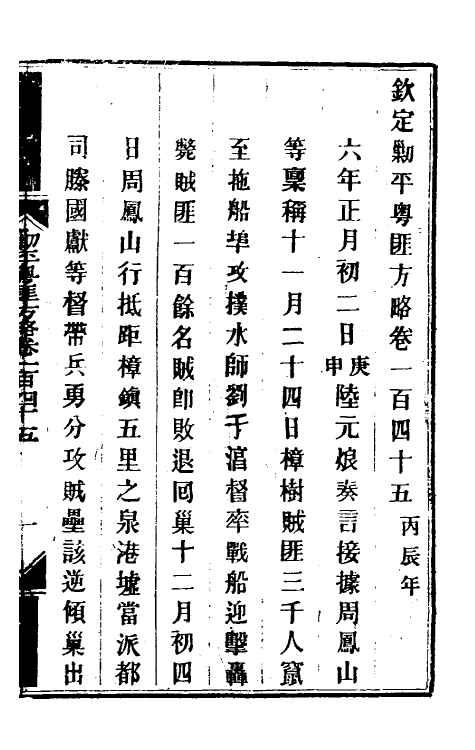 欽定剿平粵匪方略卷一百四十五 丙辰年
六年正月初二日庚申陸元烺奏言接據周鳳山
等稟稱十一月二十四日樟樹賊匪三千人竄
至拖船埠攻撲水師劉于潯督率戰船迎擊轟
斃賊匪一百餘名賊卽敗退回巢十二月初四
日周鳳山行抵距樟鎮五里之泉港墟當派都
司滕國獻等督帶兵勇分攻賊壘該逆傾巢出
剿平粵匪方略卷一百四十五
一